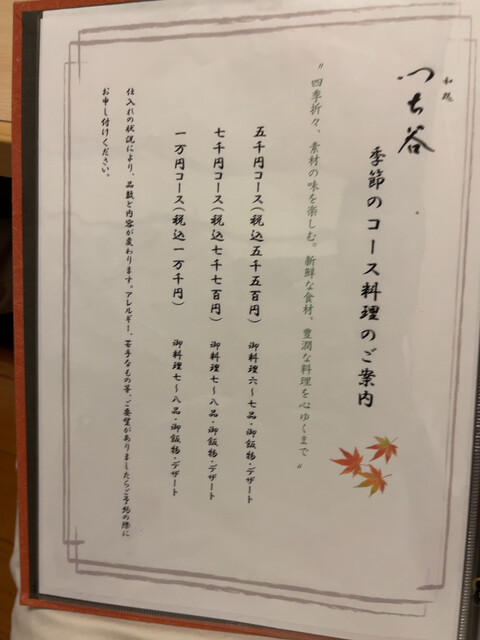 和処
つち谷
季節のコース料理のご案内
"四季折々、素材の味を楽しむ。新鮮な食材、豊潤な料理を心ゆくまで"
五千円コース(税込五千五百円) 御料理六～七品・御飯物・デザート
七千円コース(税込七千七百円) 御料理七～八品・御飯物・デザート
一万円コース(税込一万千円) 御料理七～八品・御飯物・デザート
仕入れの状況により、品数と内容が変わります。アレルギー、苦手なもの等、ご要望がありましたらご予約の際に
お申し付けください。